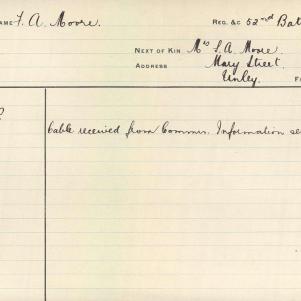 NAME F. A. Moore. REG. &C 52nd Bat
NEXT OF KIN Mrs S. A. Moore.
ADDRESS Mary Street,
Unley. F
Cable received from Commn. Information se